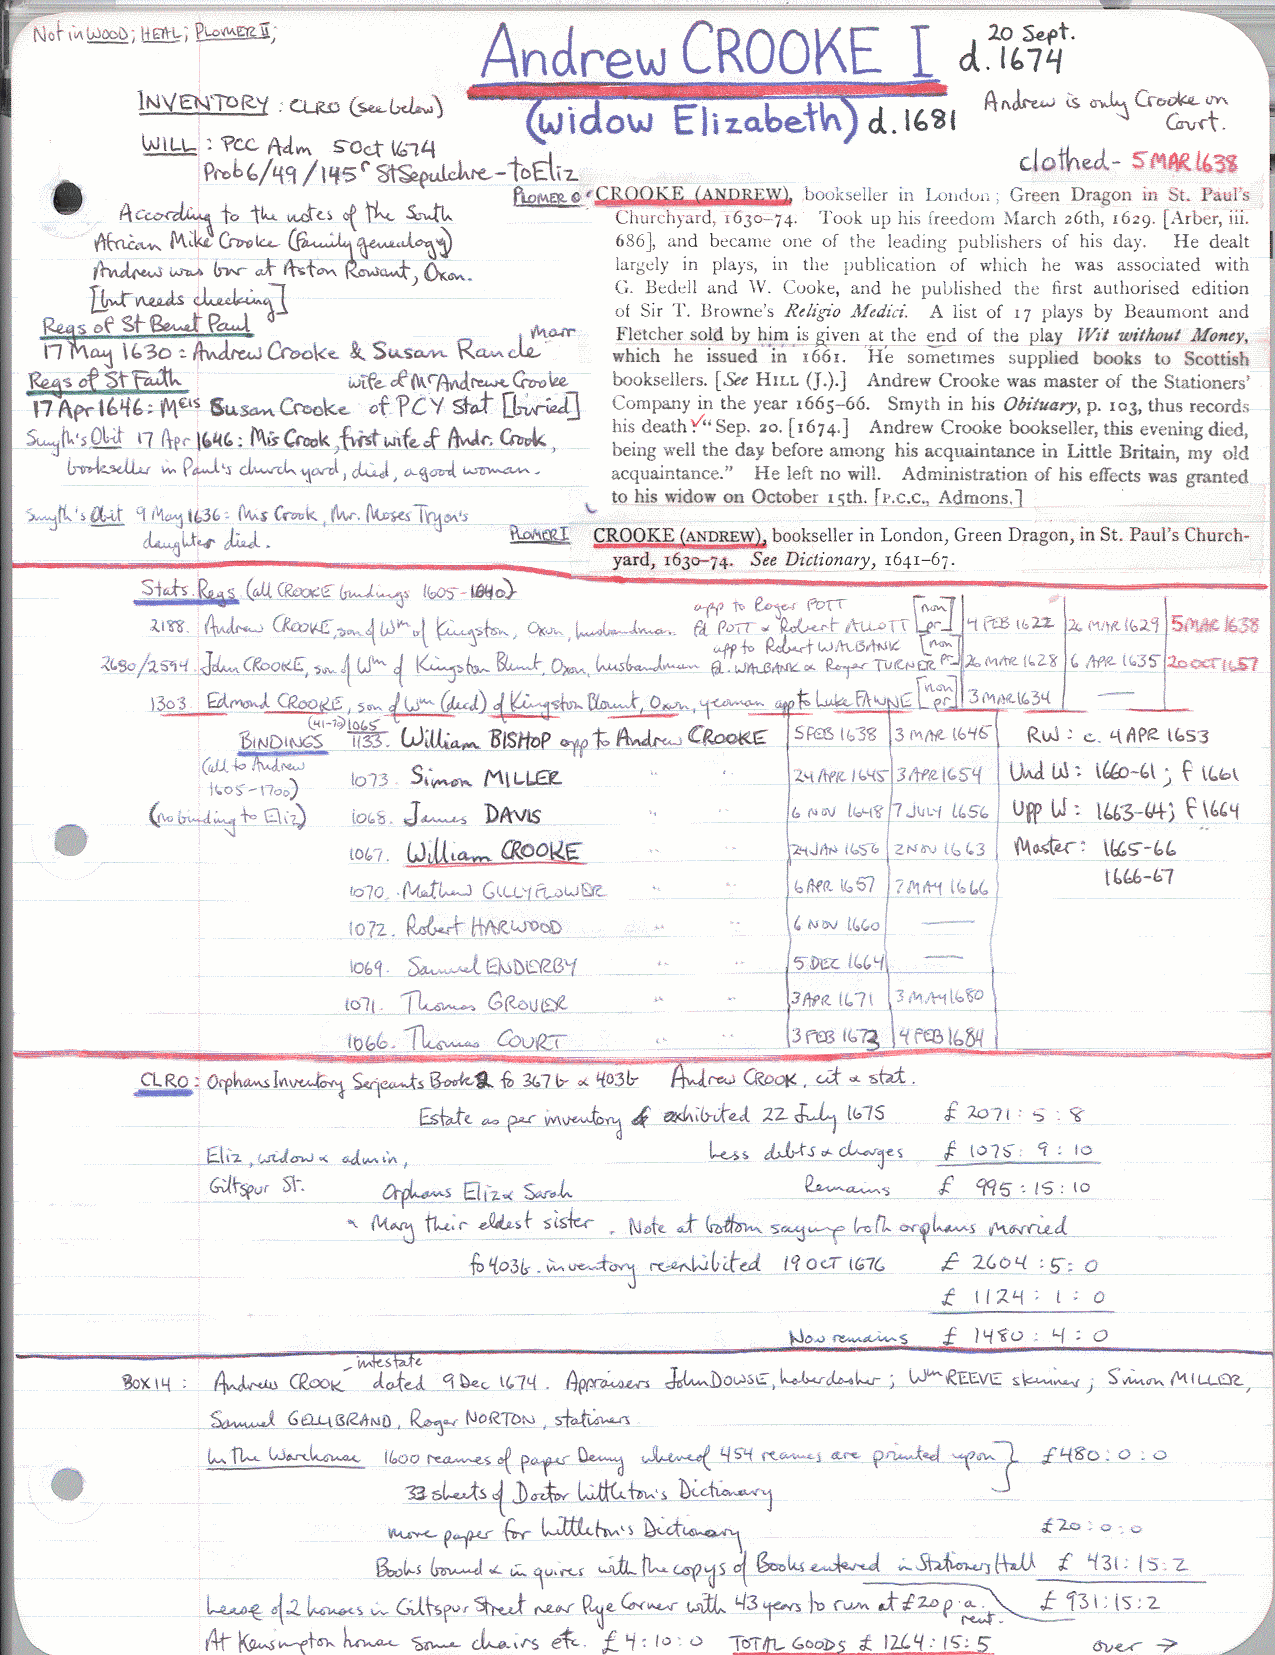 Not in WOOD; HEAL; PLOMER II;
Andrew CROOKE I
20 Sept.
d. 1674
(widow Elizabeth) d. 1681
Andrew is only Crooke on
Court.
INVENTORY: CLRO (see below)
WILL: PCC Adm 5 Oct 1674
Prob 6/49/145r St Sepulchre - to Eliz
clothed - 5 MAR 1638
According to the notes of the South
African Mike Crooke (family genealogy)
Andrew was bur at Aston Rowant, Oxon.
[but needs checking]
Regs of St Benet Paul
17 May 1630: Andrew Crooke & Susan Rande marr
Regs of St Faith
wife of Mr Andrewe Crooke
17 Apr 1646: Meis Susan Crooke of PCY Stat [buried]
Smyth's Obit 17 Apr 1646: Mis Crook, first wife of Andr. Crook,
bookseller in Paul's church yard, died, a good woman.
Smyth's Obit 9 May 1636: Mis Crook, Mr. Moses Tryon's
daughter died.
PLOMER
CROOKE (ANDREW), bookseller in London; Green Dragon in St. Paul's
Churchyard, 1630–74. Took up his freedom March 26th, 1629. [Arber, iii.
686], and became one of the leading publishers of his day. He dealt
largely in plays, in the publication of which he was associated with
G. Bedell and W. Cooke, and he published the first authorised edition
of Sir T. Browne's Religio Medici. A list of 17 plays by Beaumont and
Fletcher sold by him is given at the end of the play Wit without Money,
which he issued in 1661. He sometimes supplied books to Scottish
booksellers. [See HILL (J.).] Andrew Crooke was master of the Stationers'
Company in the year 1665–66. Smyth in his Obituary, p. 103, thus records
his death: "Sep. 20. [1674.] Andrew Crooke bookseller, this evening died,
being well the day before among his acquaintance in Little Britain, my old
acquaintance." He left no will. Administration of his effects was granted
to his widow on October 15th. [P.C.C., Admons.]
PLOMER I
CROOKE (ANDREW), bookseller in London, Green Dragon, in St. Paul's Church-
yard, 1630–74. See Dictionary, 1641–67.
Stats. Regs (all CROOKE bindings 1605-1640)
app to Roger POTT
2188. Andrew CROOKE, son of Wm of Kingston, Oxon, husbandman fd POTT & Robert ALLOTT [non pr] 4 FEB 1622 26 MAR 1629 5 MAR 1638
app to Robert WALBANK
2680/2594. John CROOKE, son of Wm of Kingston Blunt, Oxon, husbandman fd. WALBANK & Roger TURNER [non pr] 26 MAR 1628 6 APR 1635 20 OCT 1657
1303. Edmond CROOKE, son of Wm (decd) of Kingston Blount, Oxon, yeoman app to Luke FAWNE [non pr] 3 MAR 1634 —
(41-70) 1065
BINDINGS 1133. William BISHOP app to Andrew CROOKE 5 FEB 1638 3 MAR 1645 RW: c. 4 APR 1653
(all to Andrew
1605-1700)
1073. Simon MILLER " " 24 APR 1645 3 APR 1654 Und W: 1660-61; f 1661
(no binding to Eliz)
1068. James DAVIS " " 6 NOV 1648 7 JULY 1656 Upp W: 1663-64; f 1664
1067. William CROOKE " " 24 JAN 1656 2 NOV 1663 Master: 1665-66
1666-67
1070. Mathew GILLYFLOWER " " 6 APR 1657 7 MAY 1666
1072. Robert HARWOOD " " 6 NOV 1660 —
1069. Samuel ENDERBY " " 5 DEC 1664 —
1071. Thomas GROVER " " 3 APR 1671 3 MAY 1680
1066. Thomas COURT " " 3 FEB 1673 4 FEB 1684
CLRO: Orphans Inventory Serjeants Book 2 fo 367b & 403b Andrew CROOK, cit & stat.
Estate as per inventory exhibited 22 July 1675 £ 2071:5:8
Eliz, widow & admin, Less debts & charges £ 1075:9:10
Giltspur St. Orphans Eliz & Sarah Remains £ 995:15:10
& Mary their eldest sister. Note at bottom saying both orphans married
fo 403b. inventory re-exhibited 19 OCT 1676 £ 2604:5:0
£ 1124:1:0
Now remains £ 1480:4:0
BOX 14: Andrew CROOK intestate dated 9 Dec 1674. Appraisers John DOWSE, haberdasher; Wm REEVE skinner; Simon MILLER,
Samuel GELLIBRAND, Roger NORTON, stationers
In the Warehouse 1600 reames of paper Demy whereof 454 reames are printed upon } £480:0:0
33 sheets of Doctor Littleton's Dictionary
more paper for Littleton's Dictionary £20:0:0
Books bound & in quires with the copys of Books entered in Stationers Hall £ 431:15:2
Lease of 2 houses in Giltspur Street near Pye Corner with 43 years to run at £20 p.a. rent. £ 931:15:2
At Kensington house some chairs etc. £4:10:0 TOTAL GOODS £ 1264:15:5 over →